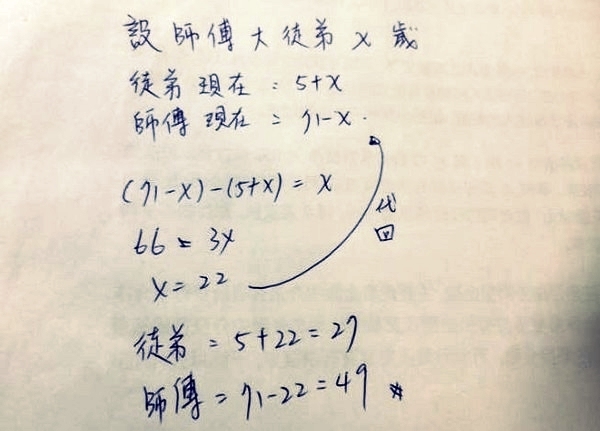 設師傅大徒弟x歲
徒弟現在：5+x
師傅現在：71-x.
(71-x)-(5+x)=x
66=3x
x=22
代
回
徒弟=5+22=27
師傅=71-22=49